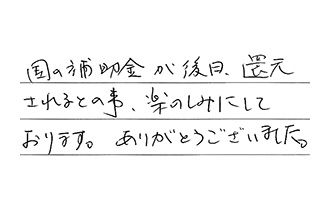 国の補助金が後日、還元
されるとの事、楽のしみにして
おります。ありがとうございました。